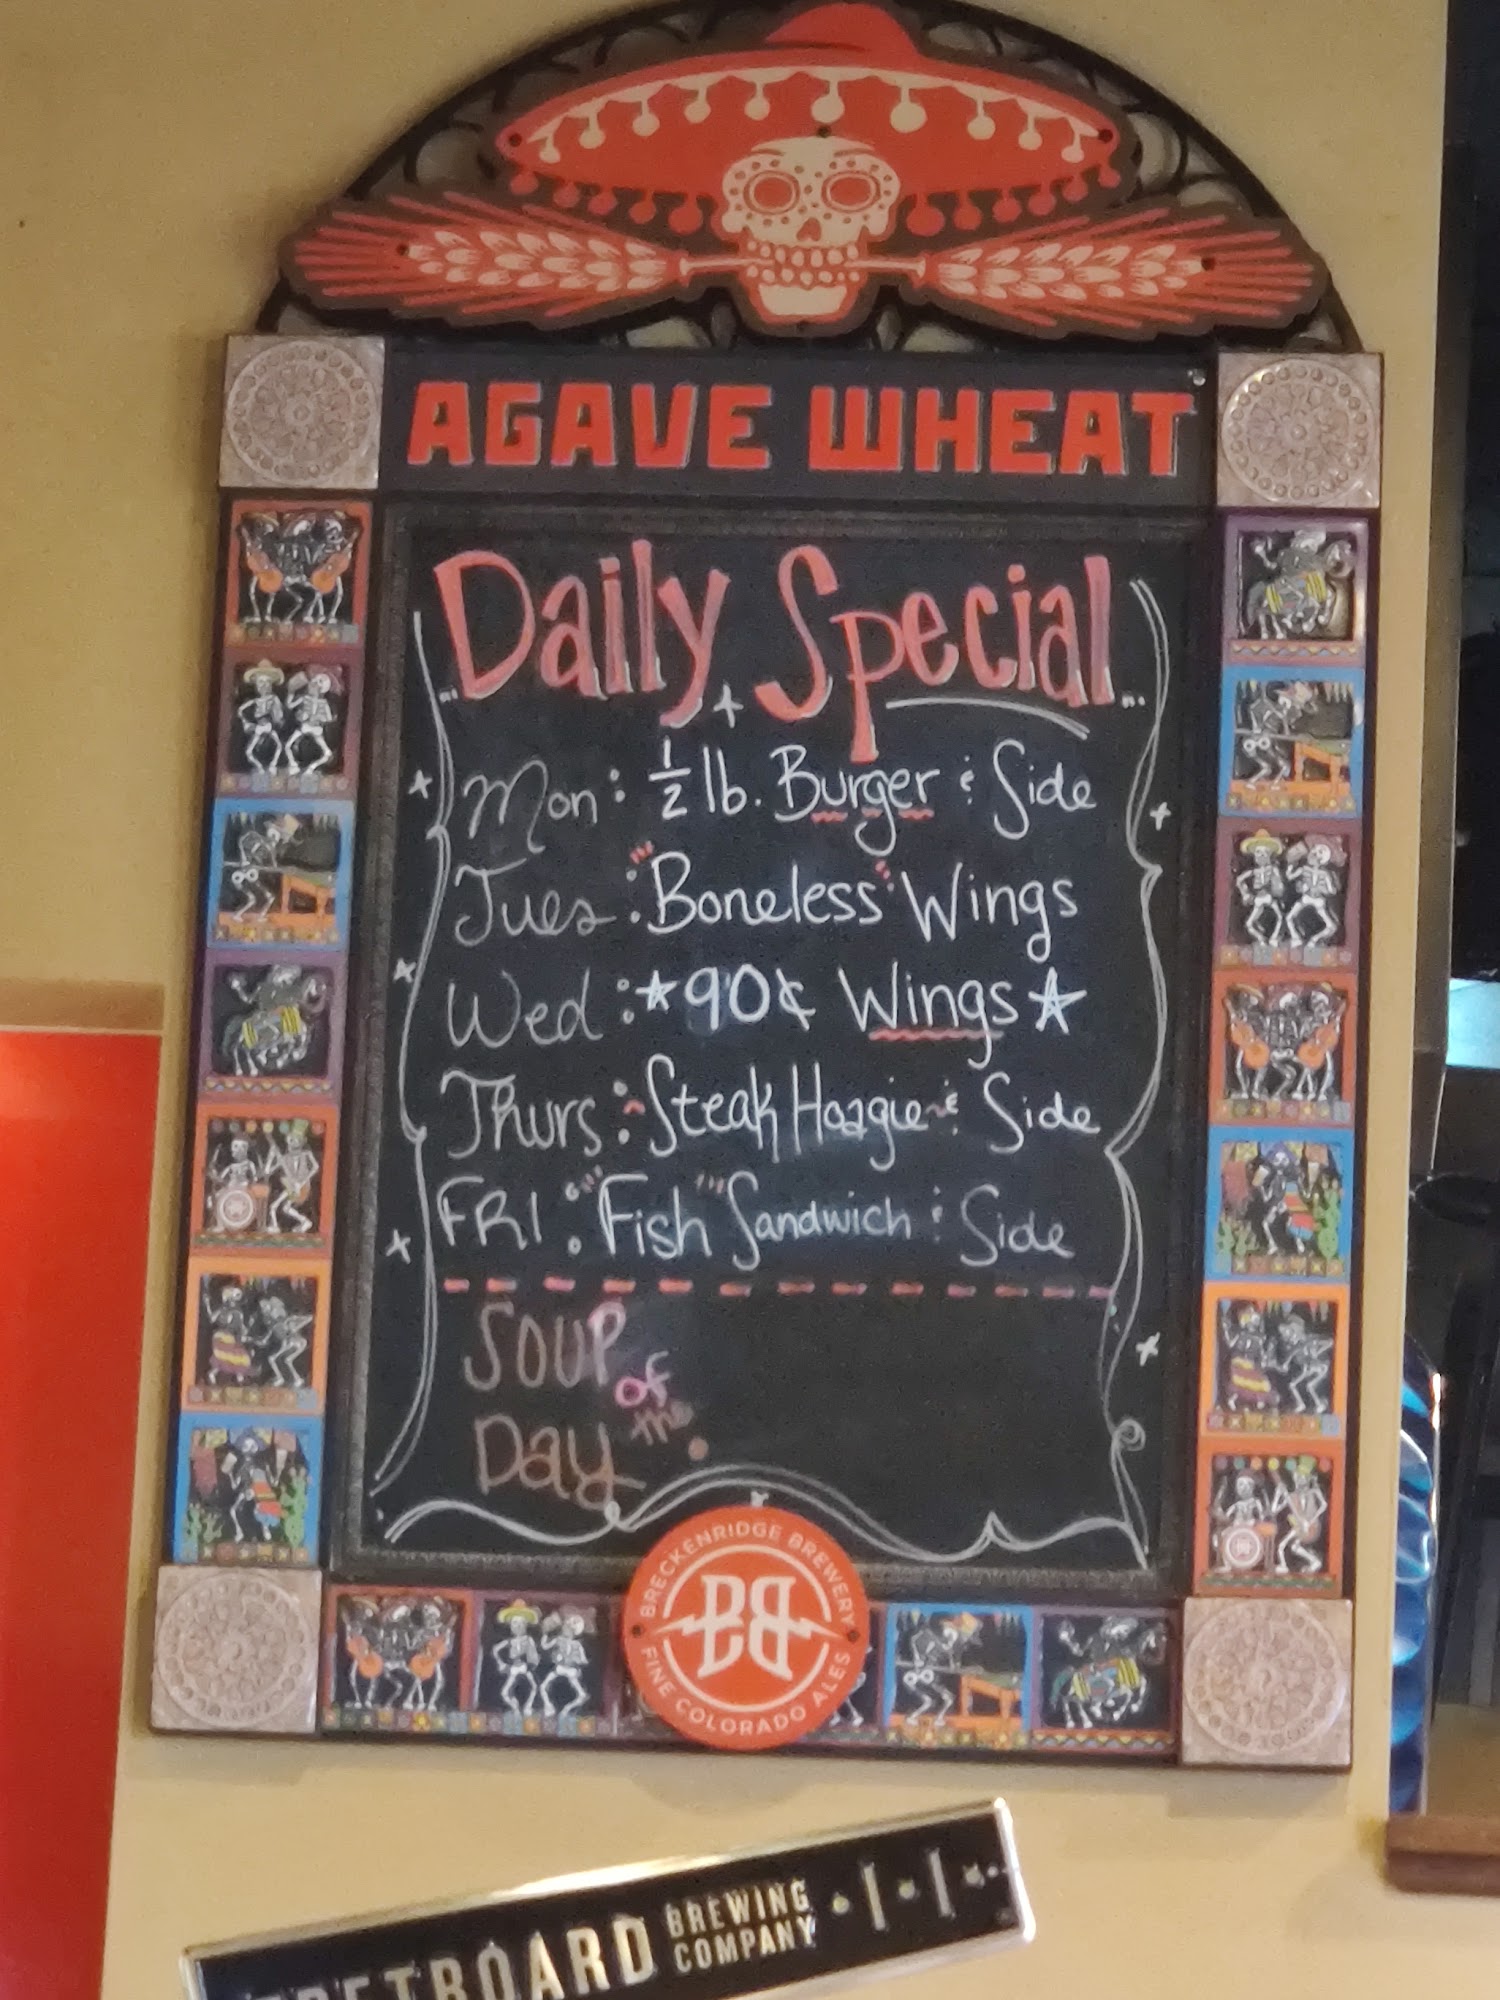 AGAVE WHEAT
Daily Special
Mon: 1/2 lb. Burger & Side
Tues: "Boneless" Wings
Wed: ★90¢ Wings★
Thurs: ~Steak Hoagie~ & Side
FRI: "Fish" Sandwich & Side
SOUP
of
the
Day
BRECKENRIDGE BREWERY
BB
FINE COLORADO ALES
BREWING
COMPANY